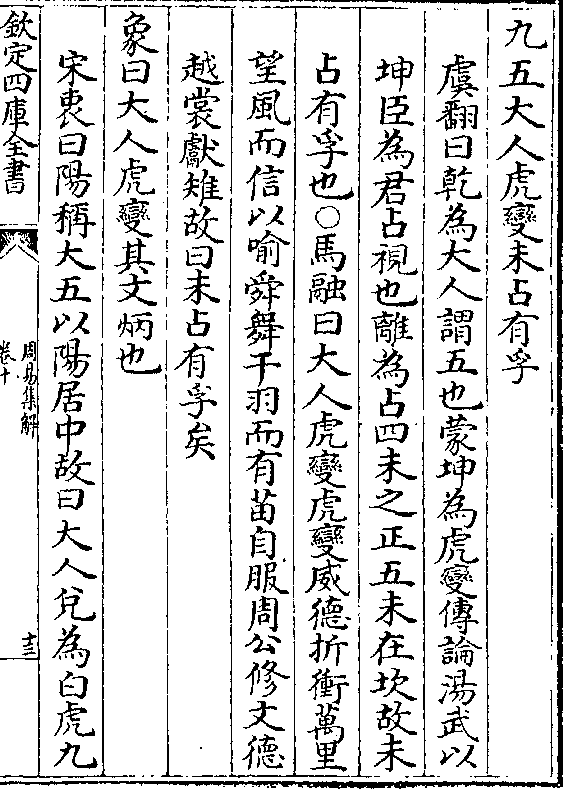 九五大人虎變未占有孚
虞翻曰乾為大人謂五也蒙坤為虎變傳論湯武以
坤臣為君占視也離為占四未之正五未在坎故未
占有孚也○馬融曰大人虎變虎變威德折衝萬里
望風而信以喻舜舞干羽而有苗自服周公修文德
越裳獻雉故曰未占有孚矣
象曰大人虎變其文炳也
宋衷曰陽稱大五以陽居中故曰大人兌為白虎九
欽定四庫全書
周易集解
卷十
十三